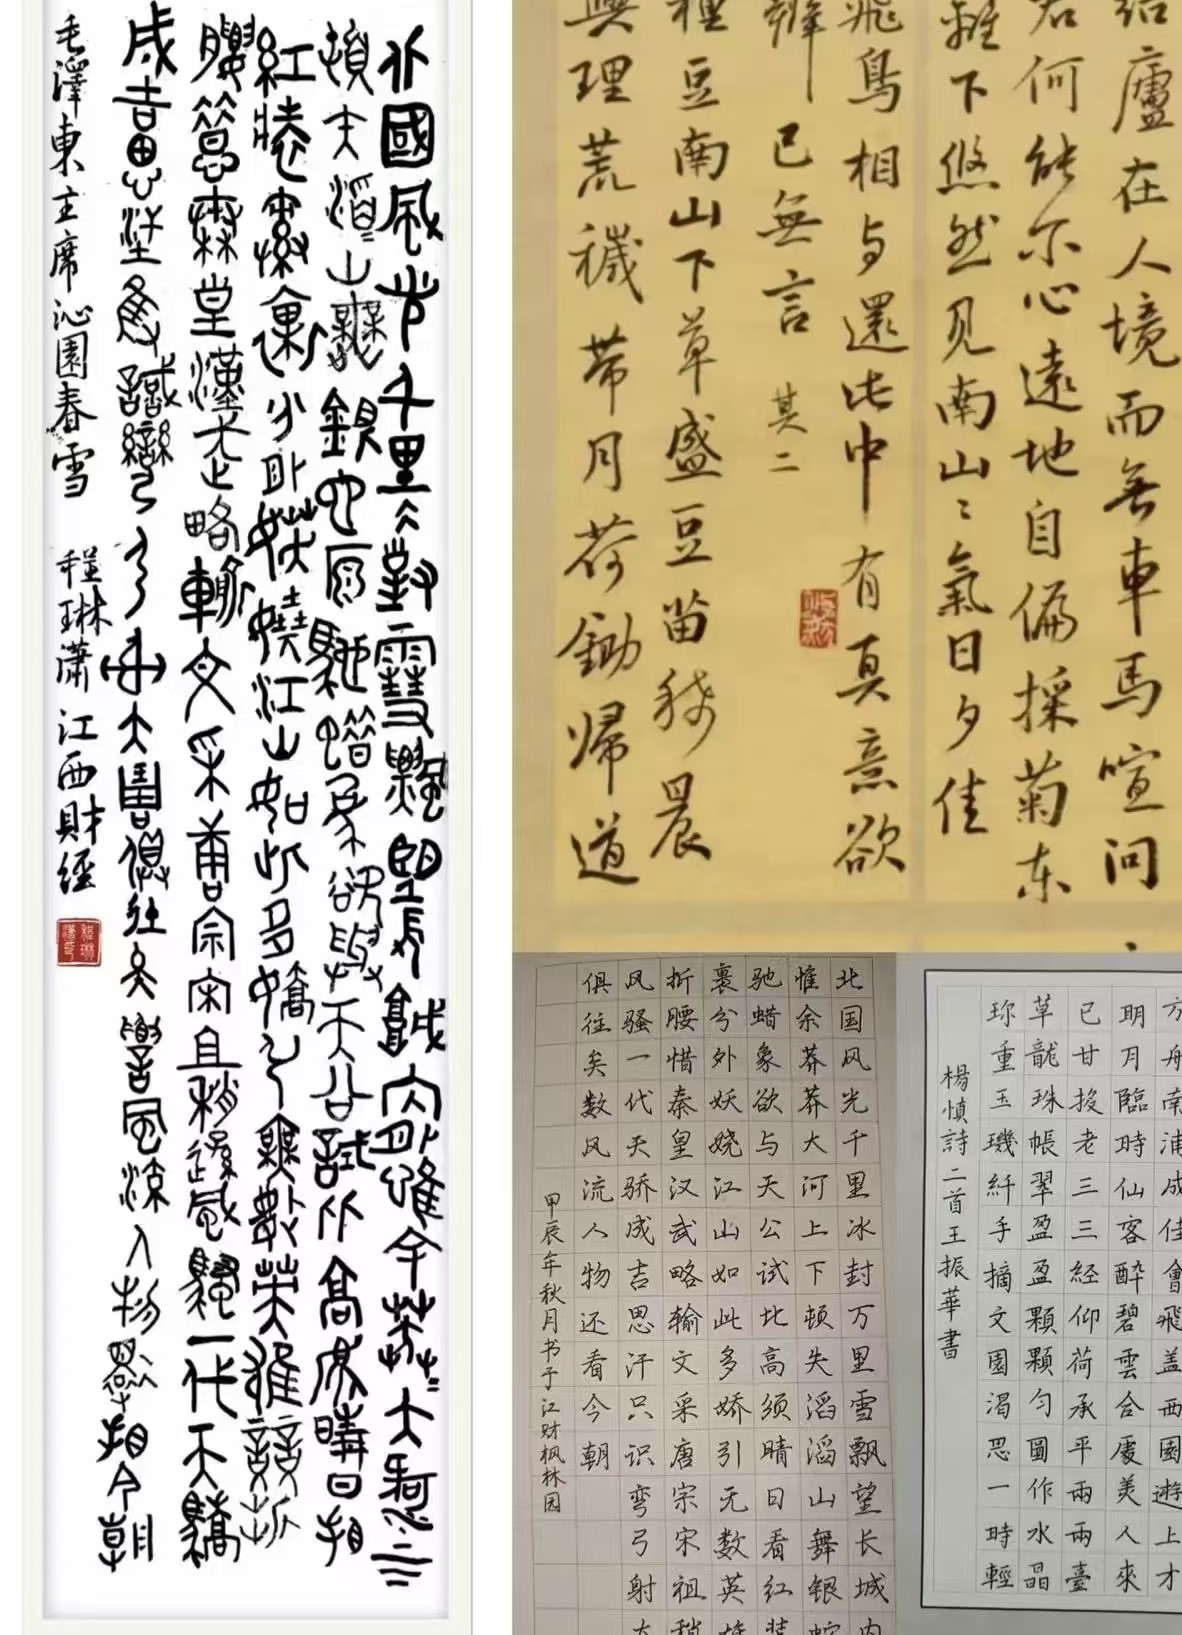 北國風光千里冰封雪飄望長城内外惟余莽〻大河上下
頓失滔〻山舞銀蛇原馳蠟象欲與天公試比高須晴日看
紅裝素裹分外妖嬈江山如此多嬌引無數英雄競折
腰惜秦皇漢武略輸文采唐宗宋祖稍遜風騷一代天驕
成吉思汗只識彎弓射大雕俱往矣數風流人物還看今朝
毛澤東主席沁園春雪 程琳潇 江西財經
結廬在人境而无車馬喧问
君何能尔心遠地自偏採菊东
籬下悠然见南山〻氣日夕佳
飛鳥相与還此中有真意欲
辨已無言 其二
種豆南山下草盛豆苗稀晨
興理荒穢带月荷鋤歸道
北国风光千里冰封万里雪飘望长城内
惟余莽莽大河上下顿失滔滔山舞银蛇
驰蜡象欲与天公试比高须晴日看红装
裹分外妖娆江山如此多娇引无数英雄
折腰惜秦皇汉武略输文采唐宗宋祖稍
风骚一代天骄成吉思汗只识弯弓射大
俱往矣数风流人物还看今朝
甲辰年秋月书于江财枫林园
方舟南浦成佳會飛盖西園遊上才
明月臨時仙客醉碧雲合處美人來
已甘投老三三经仰荷承平兩兩臺
草龍珠帳翠盈盈顆顆勻圓作水晶
珎重玉璣纤手摘文園渴思一時輕
楊慎詩二首王振華書